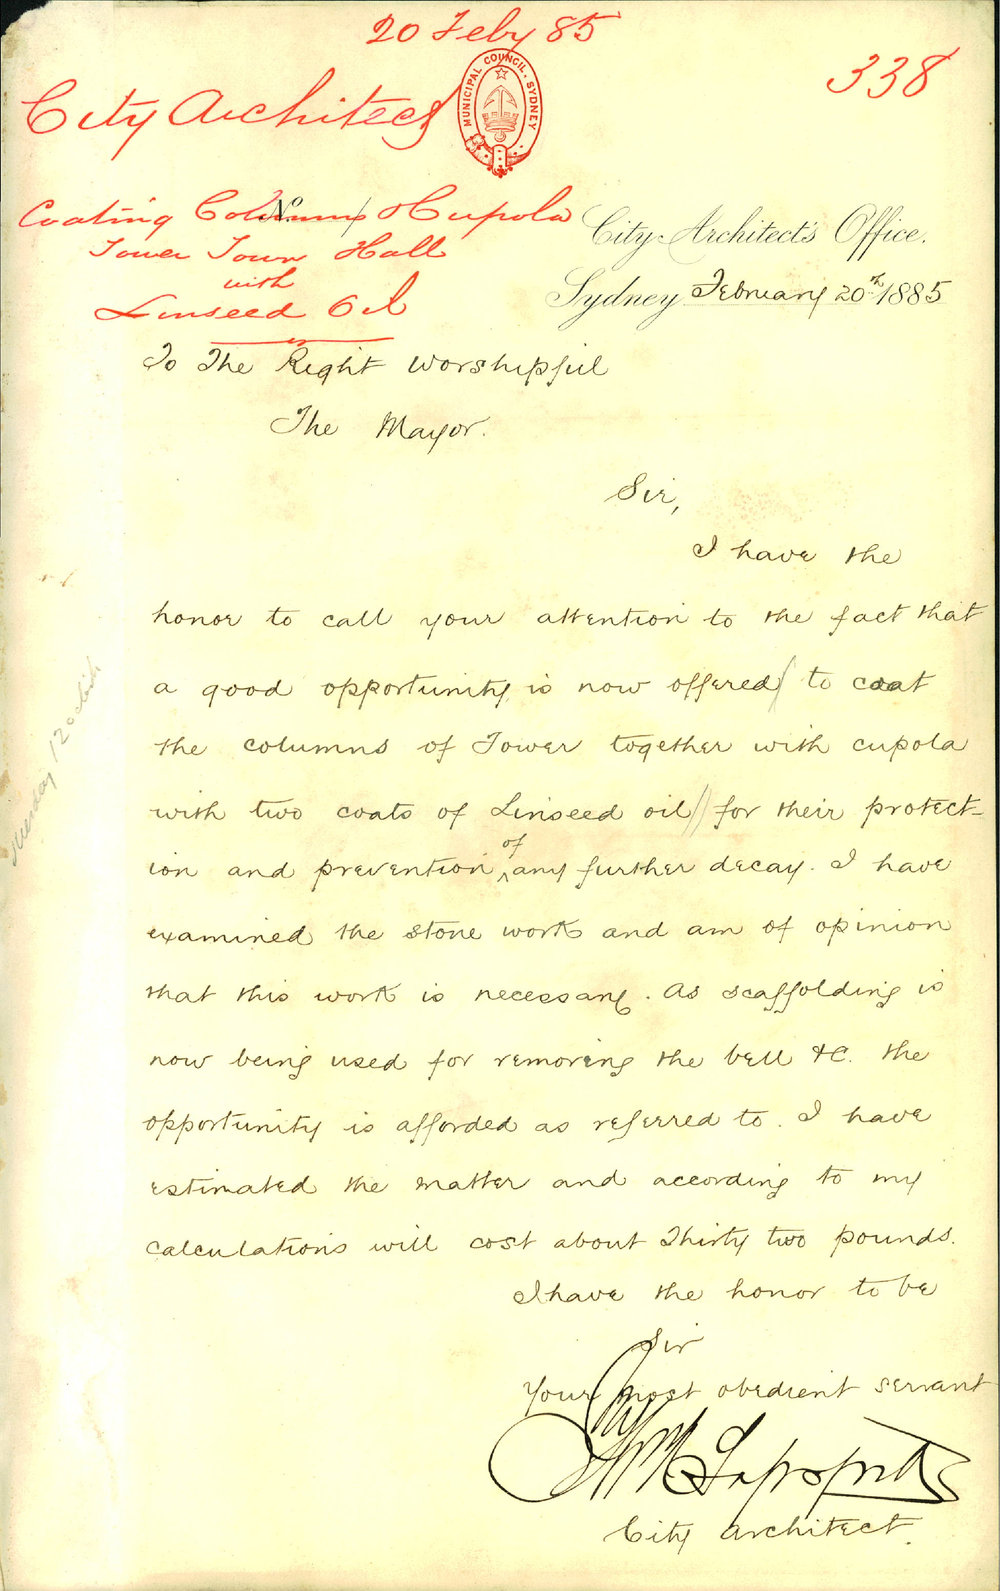 20 Feby 85
338
City Architect
MUNICIPAL COUNCIL. SYDNEY
Coating Columns & Cupola
Tower Town Hall
with
Linseed Oil
No.
City Architect's Office.
Sydney February 20th 1885
To The Right Worshipful
The Mayor.
Sir,
I have the
honor to call your attention to the fact that
a good opportunity is now offered to coat
the columns of Tower together with cupola
with two coats of Linseed oil for their protect-
ion and prevention of any further decay. I have
examined the stone work and am of opinion
that this work is necessary. As scaffolding is
now being used for removing the bell &c. the
opportunity is afforded as referred to. I have
estimated the matter and according to my
calculations will cost about Thirty two pounds.
I have the honor to be
Sir
Your most obedient servant
City Architect.